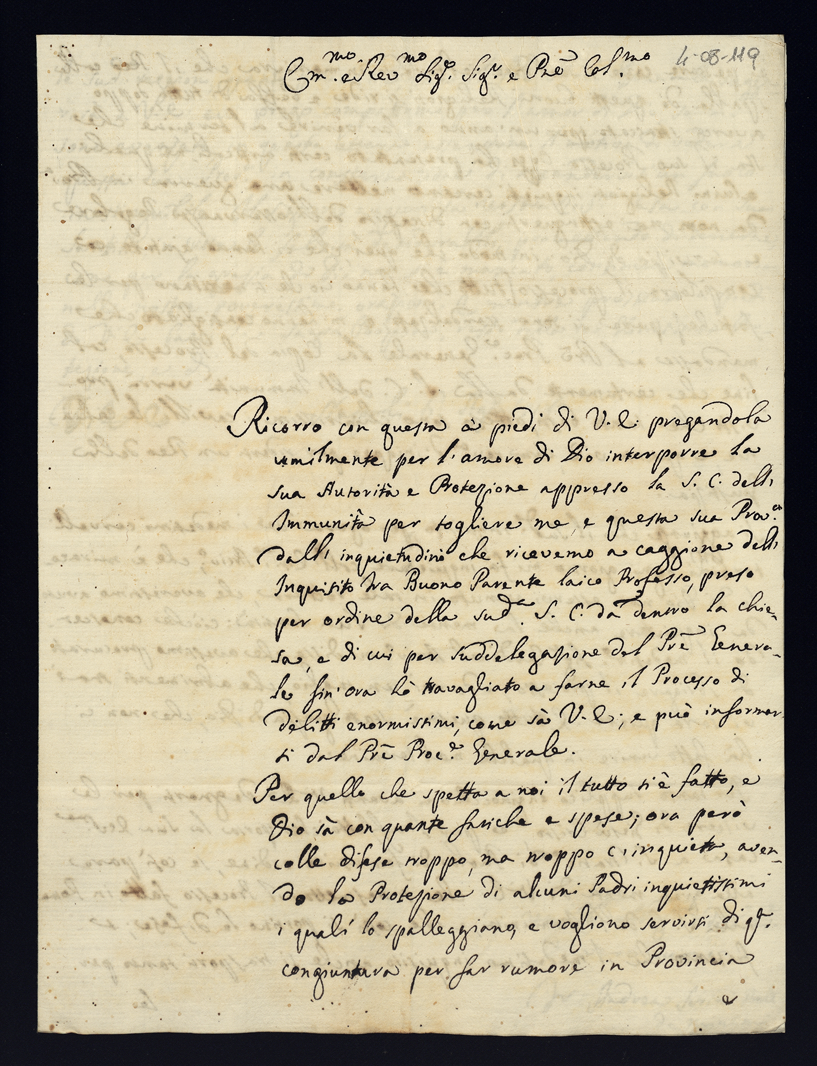 4-08-119
Em.mo e Rev.mo Sig.r Sig.r e Pñe Col.mo
Ricorro con questa à piedi di V. E. pregandola
umilmente per l'amore di Dio interporre la
sua Autorità e Protezione appresso la S. C. dell'
Immunità per togliere me, e questa sua Prov.a
dall' inquietudini che ricevemo a caggione dell'
Inquisito fra Buono Parente laico Professo, preso
per ordine della sud.a S. C. da dentro la chie-
sa, e di cui per suddelegazione del Prẽ Genera-
le sin'ora hò travagliato a farne il Processo di
delitti enormissimi, come sà V. E; e può informar
si dal Prẽ Proc.e Generale.
Per quello che spetta a noi il tutto si è fatto, e
Dio sà con quante fatiche e spese; ora però
colle difese troppo, ma troppo c'inquieta, aven-
do la Protezione di alcuni Padri inquietissimi
i quali lo spalleggiano, e vogliono servirsi di q.a
congiuntura per far rumore in Provincia
e